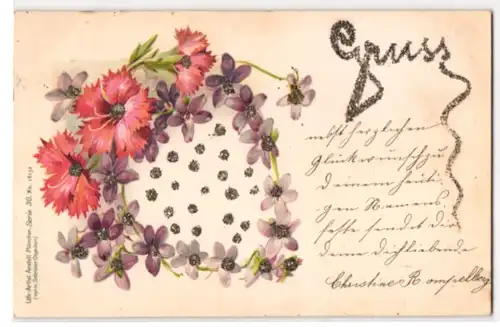 Gruss
nebst herzlichen
Glückwunsch zu
deinem heuti-
gen Namens
feste sendet dir
deine dichliebende
Christine Rompelberg
Lith.-Artist. Anstalt München, Serie 30. No.